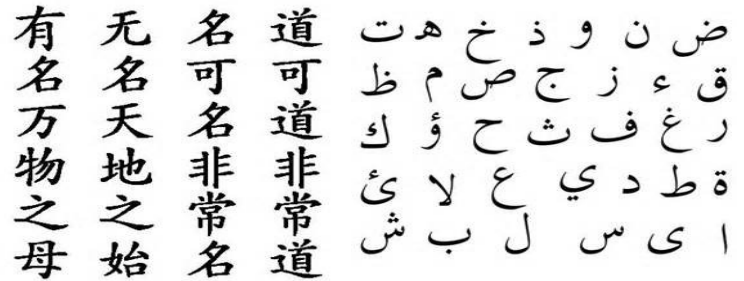 道可道非常道
名可名非常名
无名天地之始
有名万物之母
ض ن و ذ خ ه ت
ق ء ز ج ص م ظ
ر غ ف ث ح ؤ ك
ة ط د ي ع لا ئ
ا ى س ل ب ش